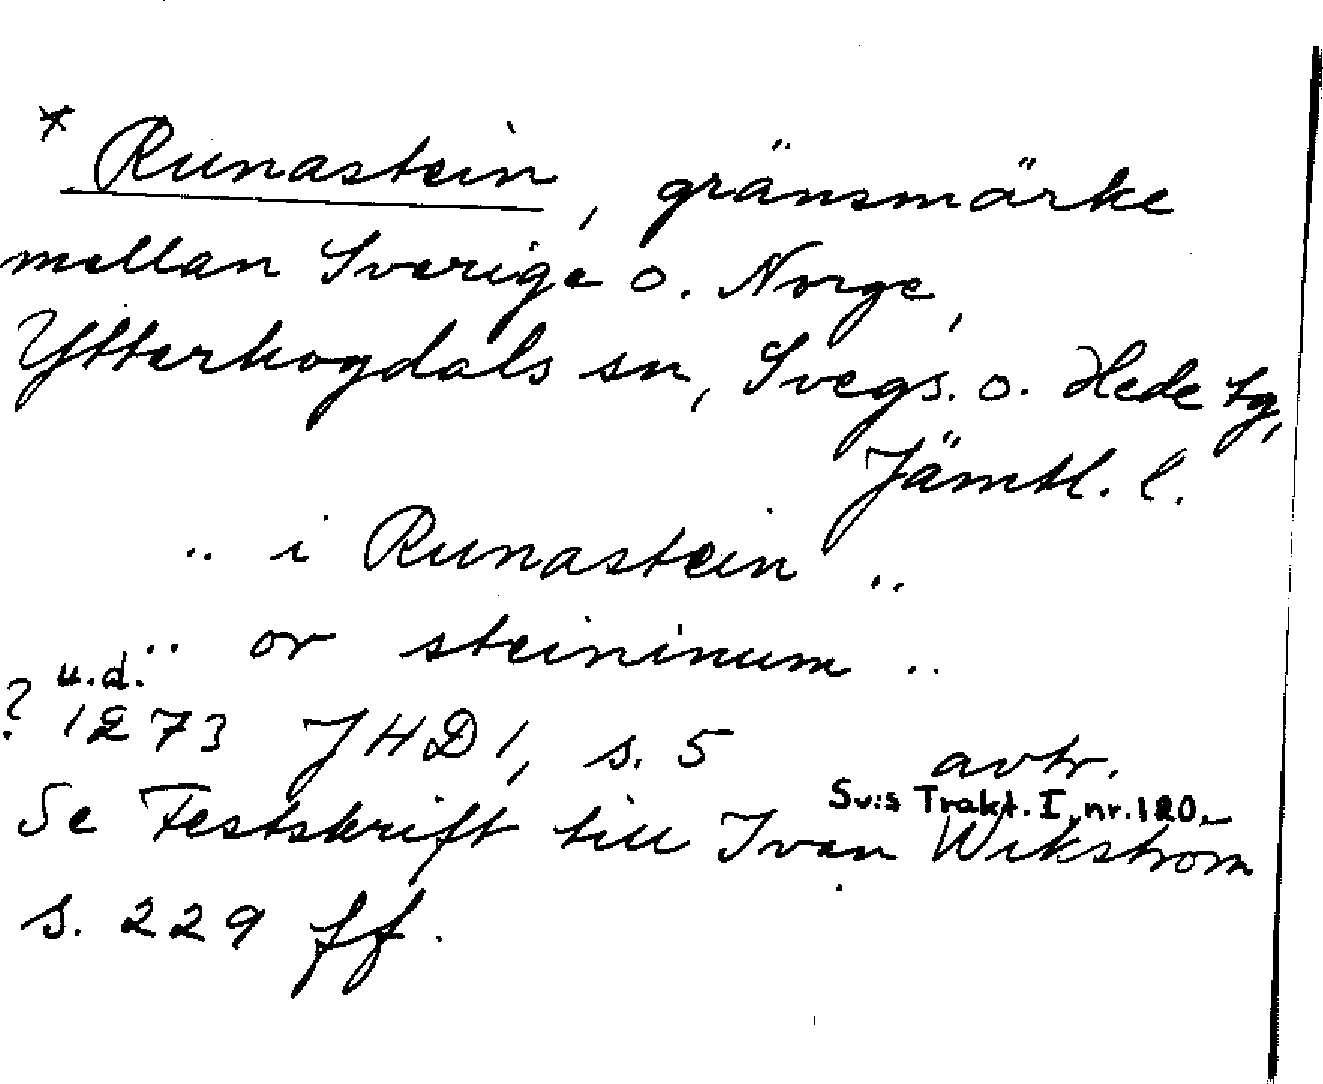 * Runastein, gränsmärke
mellan Sverige o. Norge,
Ytterhogdals sn, Svegs. o. Hede tg,
Jämtl. l.
.. i Runastein ..
.. or steininum ..
u.d.
? 1273 JHD 1, s. 5 avtr.
Sv:s Trakt. I, nr. 120.
Se Festskrift till Ivan Wikstrom
s. 229 ff.